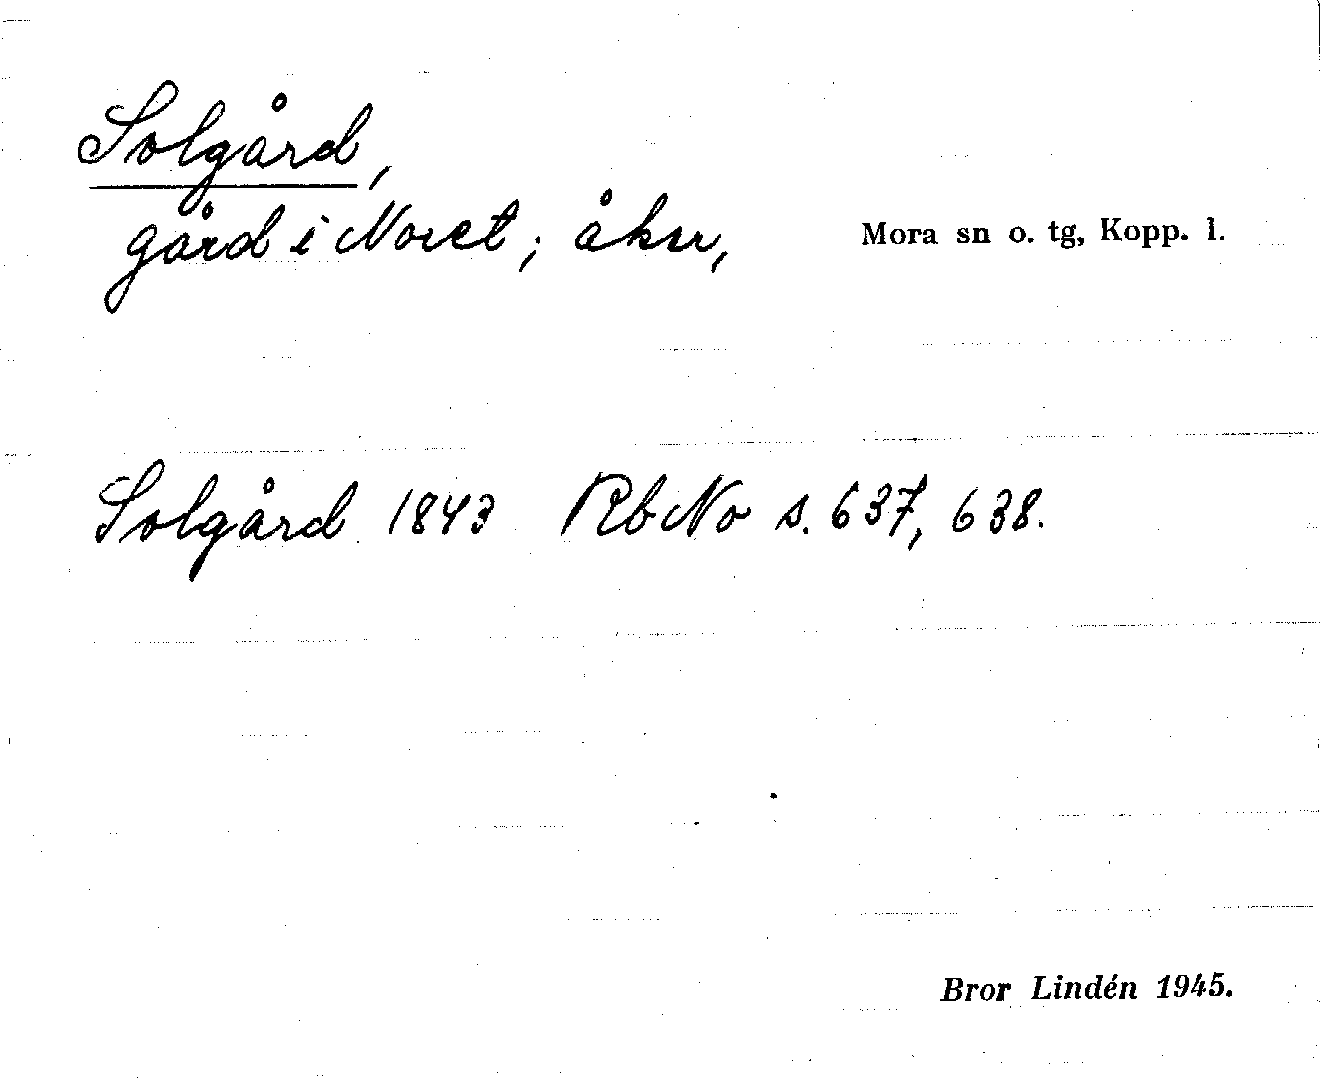 Solgård,
gård i Noret; åker, Mora sn o. tg, Kopp. l.
Solgård 1843 RbNo s. 637, 638.
Bror Lindén 1945.